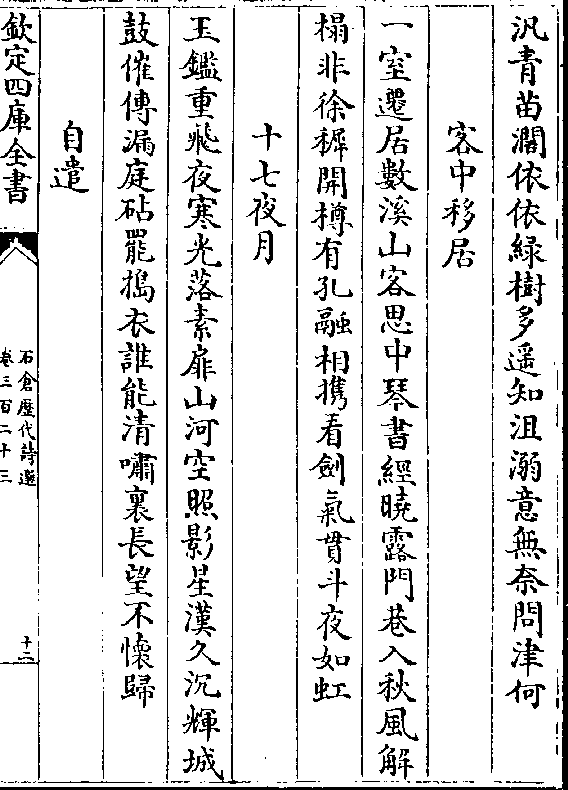 汎青苗濶依依緑樹多遥知沮溺意無奈問津何
客中移居
一室還居數溪山客思中琴書經曉露門巷入秋風解
榻非徐穉開樽有孔融相携看劍氣貫斗夜如虹
十七夜月
玉鑑重飛夜寒光落素扉山河空照影星漢久沉輝城
鼓催傳漏庭砧罷搗衣誰能清嘯裏長望不懷歸
自遣
欽定四庫全書
石倉歴代詩選
卷三百二十三
十二